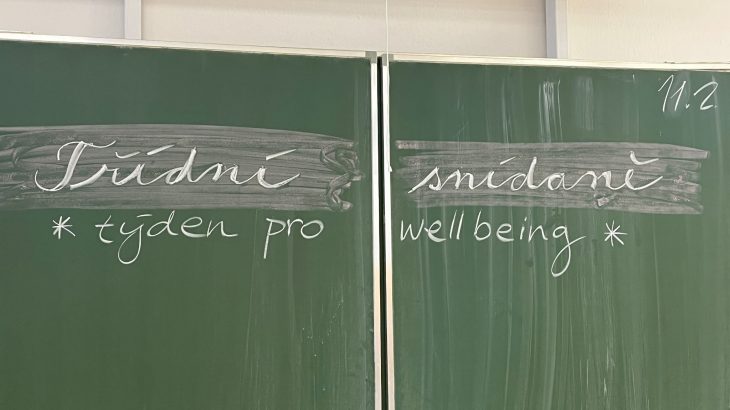 11.2.
Třídní snídaně
* týden pro wellbeing *